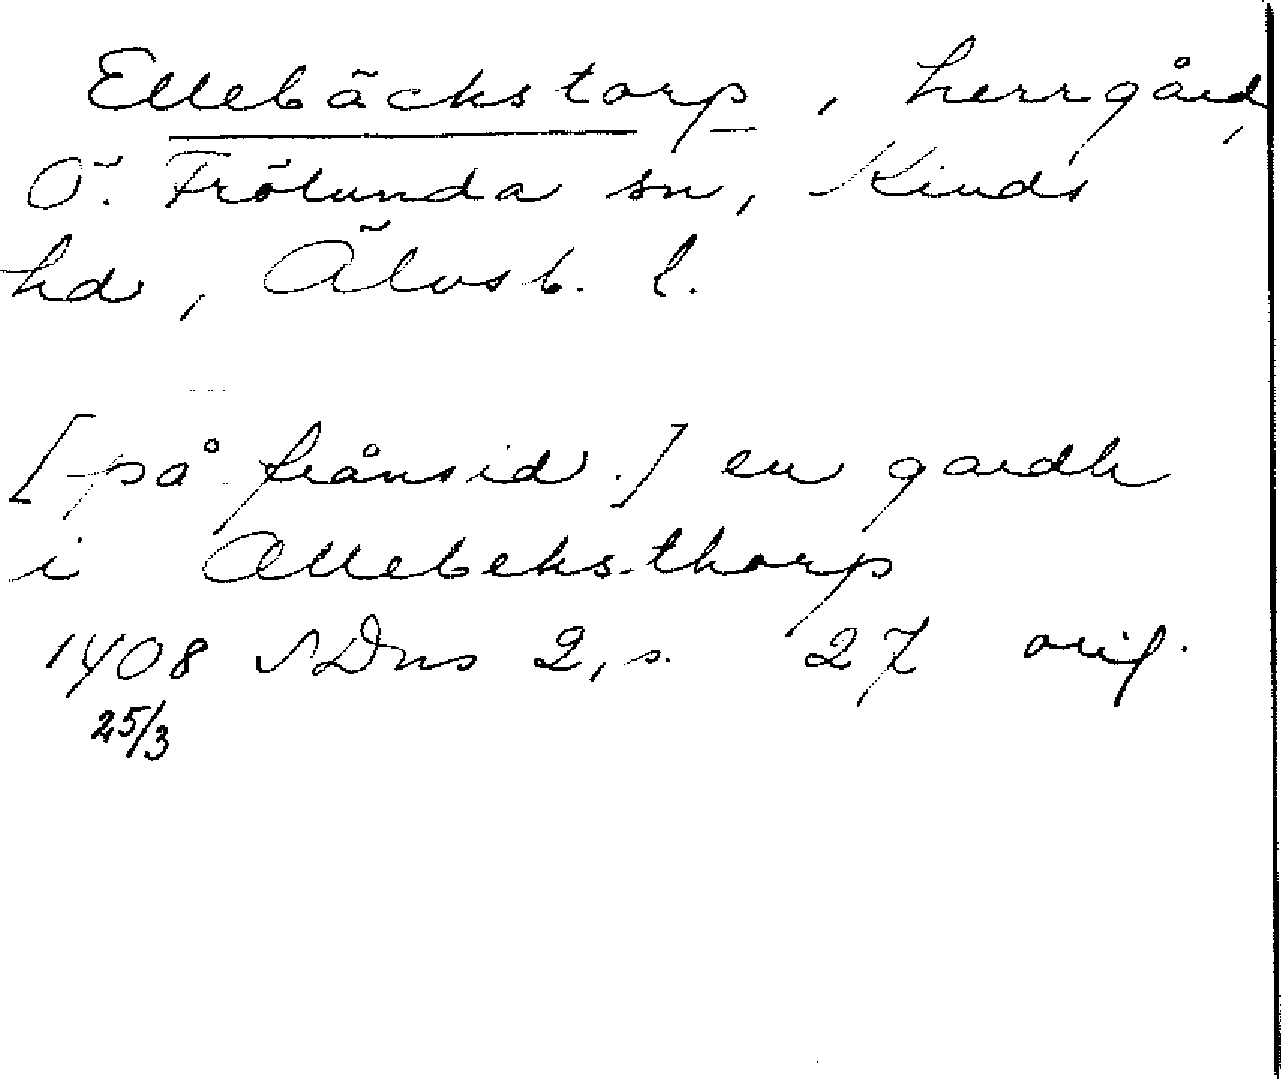 Ellebäckstorp, herrgård,
Ö. Frölunda sn, Kinds
hd, Älvsb. l.
[på frånsid.] en gardh
i Ællebeksthorp
1408 SDns 2, s. 27 orig.
25/3